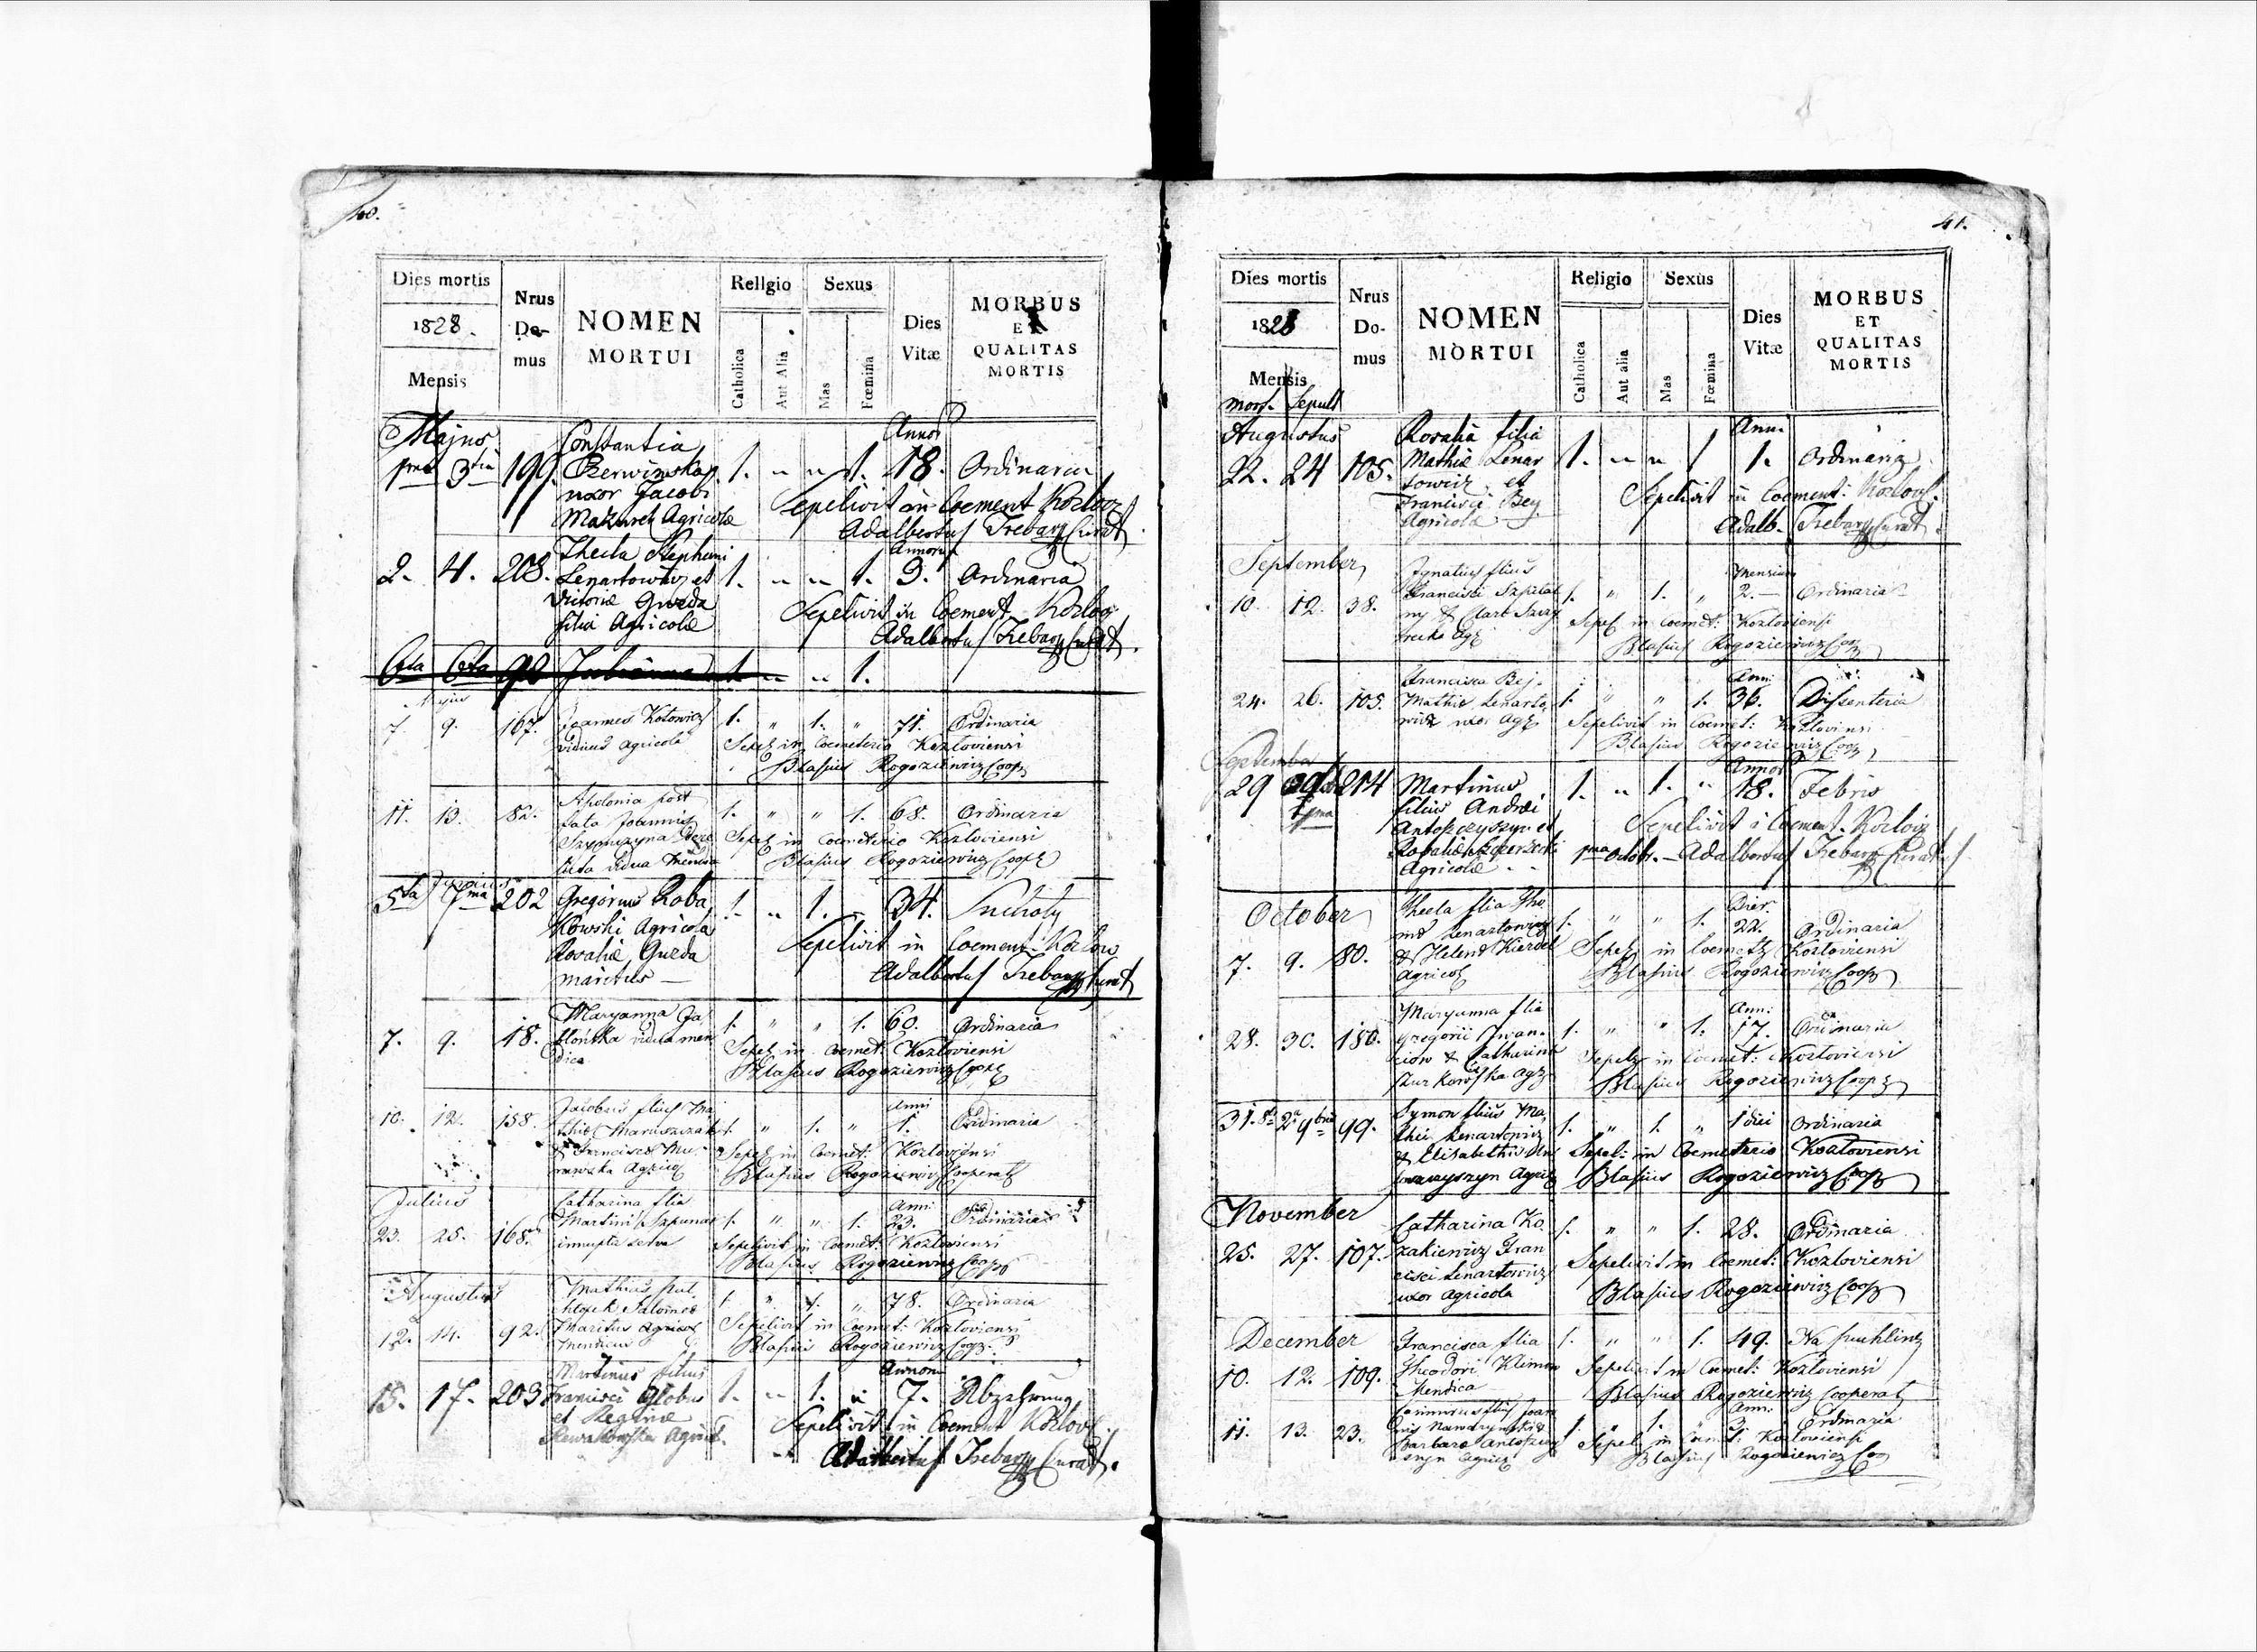 40.
Dies mortis
1828.
Mensis
Nrus Do- mus
NOMEN
MORTUI
Religio
Catholica
Aut Alia
Sexus
Mas
Fœmina
Dies
Vitæ
MORBUS
ET
QUALITAS
MORTIS
Majus
Annor
Constantia
1ma 3tia 199. Czerwinska 1. " " 1. 18. Ordinaria
uxor Jacobi
Mazurek Agricolæ
Sepelivit in Coement Kozlov
Adalbertus Trebacz Curat
Thecla Stephani
Annorum
2. 4. 208. Lenartowicz et 1. " " 1. 9. Ordinaria
Victoriæ Gwzda
filia Agricolæ
Sepelivit in Coement Kozlov
Adalbertus Trebacz Curat.
6ta 6ta 98 Julianna 1. " " 1.
Majus
7. 9. 167. Joannes Kotowicz 1. " 1. " 71. Ordinaria
viduus agricola
Sepel in Coemeterio Kozloviensi
Blasius Rogoziewicz Coop
Apolonia post
11. 13. 82. fata Joannis 1. " " 1. 68. Ordinaria
vidua
Sepel in Coemeterio Kozloviensi
Blasius Rogoziewicz Coop
Junius
5ta 7ma 202 Gregorius Raba 1. " 1. " 34. Suchoty
kowski Agricola
Rosaliæ Gwzda
maritus
Sepelivit in Coement: Kozlow
Adalbertus Trebacz Curat
Maryanna Ja
7. 9. 18. błońska vidua men 1. " " 1. 60. Ordinaria
dica
Sepel in Coemet: Kozloviensi
Blasius Rogoziewicz Coop
Jacobus filius Ma
Anni
10. 12. 158. thiæ 1. " 1. " 1. Ordinaria
& Franciscæ Mu
rawska Agric
Sepel in Coemet: Kozloviensi
Blasius Rogoziewicz Cooperat
Julius
Catharina filia
Ann:
23. 25. 168. Martini Szpunar 1. " " 1. 23. Ordinaria
innupta serva
Sepelivit in Coemet: Kozloviensi
Blasius Rogoziewicz Coop
Augustus
Mathias
12. 14. 92. Salomeæ 1. " 1. " 78. Ordinaria
Maritus agricol
Mendicus
Sepelivit in Coemet: Kozloviensi
Blasius Rogoziewicz Coop
Martinus filius
Annorum
15. 17. 203 Francisci Globus 1. " 1. " 7.
et Reginæ
Agricol.
Sepelivit in Coement Kozlov
Adalbertus Trebacz Curat.
41.
Dies mortis
1828
Mensis
Mort. Sepult
Nrus
Do-
mus
NOMEN
MORTUI
Religio
Catholica
Aut alia
Sexus
Mas
Fœmina
Dies
Vitæ
MORBUS
ET
QUALITAS
MORTIS
Augustus
Rosalia filia
Ann:
22. 24 105. Mathiæ Lenar 1. " " 1 1. Ordinaria
towicz et
Franciscæ Bey
Agricolæ
Sepelivit in Coement: Kozlov.
Adalb. Trebacz Curat.
September
Ignatius filius
Mensium
10. 12. 38. Francisci Szpital 1. " 1. " 2. Ordinaria
ny &
Sepel in Coemet: Kozloviensi
Blasius Rogoziewicz Coop
Francisca Bej.
Ann:
24. 26. 105. Mathiæ Lenarto 1. " " 1. 36. Dissenteria
wicz uxor agr.
Sepelivit in Coemet: Kozloviensi
Blasius Rogoziewicz Coop
September
Annor
29 1ma 214 Martinus 1. " 1. " 18. Febris
filius Andræi
Antoszczyszyn et
Rosaliæ
Agricolæ
Sepelivit i Coement. Kozlovi
1ma Octobr. Adalbertus Trebacz Curatus
October
Thecla filia Tho
Dier.
7. 9. 80. mæ Lenartowicz 1. " " 1. 22. Ordinaria
& Helenæ
Agricol
Sepel in Coemet Kozloviensi
Blasius Rogoziewicz Coop
Maryanna filia
Ann:
28. 30. 180. Gregorii Iwan 1. " " 1. 17. Ordinaria
ciow & Catharinæ
Agr.
Sepel in Coemet: Kozloviensi
Blasius Rogoziewicz Coop
Symon filius Ma
31. 8b 2a 9bris 99. thæi Lenartowicz 1. " 1. " 1 diei Ordinaria
& Elisabethæ
Agric
Sepel: in Coemeterio Kozloviensi
Blasius Rogoziewicz Coop
November
Catharina Ko
25. 27. 107. zakiewicz Fran 1. " " 1. 28. Ordinaria
cisci Lenartowicz
uxor agricola
Sepelivit in Coemet: Kozloviensi
Blasius Rogoziewicz Coop
December
Francisca filia 1. " " 1. 49. Na puchlinę
10. 12. 109. Theodori Klimow
Mendica
Sepelivit in Coemet: Kozloviensi
Blasius Rogoziewicz Cooperat
Casimirus filius Joan
Ann:
11. 13. 23. nis 1. " 1. " 3. Ordinaria
Barbaræ Antoszcz
szyn Agric
Sepel in Coemet: Kozloviensi
Blasius Rogoziewicz Coop